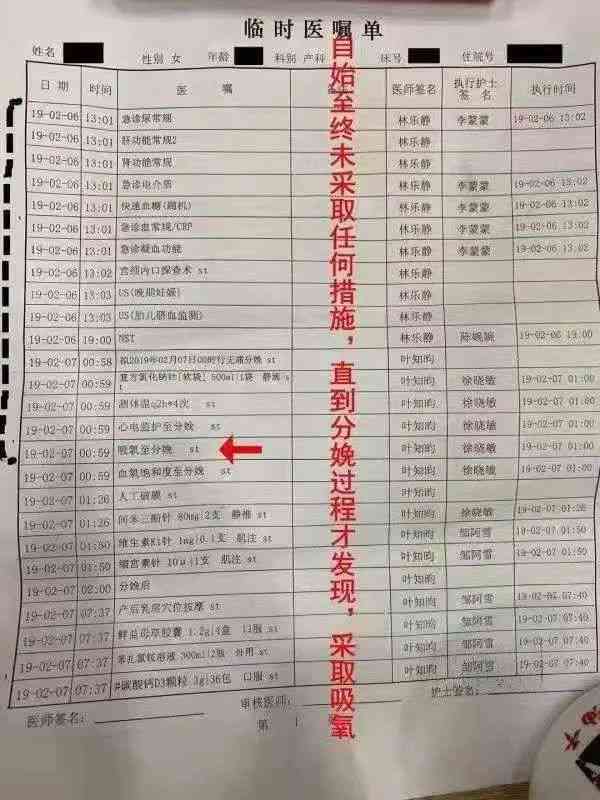 临时医嘱单
姓名 性别 女 年龄 科别 产科 床号 住院号
日期 时间 医嘱 医师签名 执行护士签名 执行时间
19-02-06 13:01 急诊尿常规 林乐静 李蒙蒙 19-02-06 13:02
19-02-06 13:01 肝功能常规2 林乐静
19-02-06 13:01 肾功能常规 林乐静
19-02-06 13:01 急诊电介质 林乐静 李蒙蒙 19-02-06 13:02
19-02-06 13:01 快速血糖(随机) 林乐静 李蒙蒙 19-02-06 13:02
19-02-06 13:01 急诊血常规/CRP 林乐静 李蒙蒙 19-02-06 13:02
19-02-06 13:01 急诊凝血功能 林乐静 李蒙蒙 19-02-06 13:02
19-02-06 13:02 宫颈内口探查术 st 林乐静
19-02-06 13:03 US(晚期妊娠) 林乐静
19-02-06 13:03 US(胎儿脐血监测) 林乐静
19-02-06 19:00 NST 林乐静 19-02-06 19:00
19-02-07 00:58 拟2019年02月07日00时行无痛分娩 st 叶知昀
19-02-07 00:59 复方氯化钠针[软袋] 500ml|1袋 静滴 st 叶知昀 徐晓敏 19-02-07 01:00
19-02-07 00:59 测体温q2h*4次 st 叶知昀 徐晓敏 19-02-07 01:00
19-02-07 00:59 心电监护至分娩 st 叶知昀 徐晓敏 19-02-07 01:00
19-02-07 00:59 吸氧至分娩 st 叶知昀 徐晓敏 19-02-07 01:00
19-02-07 00:59 血氧饱和度至分娩 st 叶知昀 徐晓敏 19-02-07 01:00
19-02-07 01:26 人工破膜 st 叶知昀
19-02-07 01:26 间苯三酚针 80mg|2支 静推 st 叶知昀 徐晓敏 19-02-07 01:26
19-02-07 01:50 维生素K1针 1mg|0.1支 肌注 st 叶知昀 邹阿雪 19-02-07 01:50
19-02-07 01:50 缩宫素针 10μ|1支 肌注 st 叶知昀 邹阿雪 19-02-07 01:50
19-02-07 02:00 分娩后 叶知昀
19-02-07 07:37 产后乳房穴位按摩 st 叶知昀 邹阿雪 19-02-07 07:40
19-02-07 07:37 鲜益母草胶囊 1.2g|4盒 口服 st 叶知昀 邹阿雪 19-02-07 07:40
19-02-07 07:37 苯扎氯铵溶液 300ml|2瓶 外用 st 叶知昀 邹阿雪 19-02-07 07:40
19-02-07 07:37 #碳酸钙D3颗粒 3g|36包 口服 st 叶知昀 邹阿雪 19-02-07 07:40
医师签名: 审核医师: 护士签名:
第 1
自始至终未采取任何措施，直到分娩过程才发现，采取吸氧